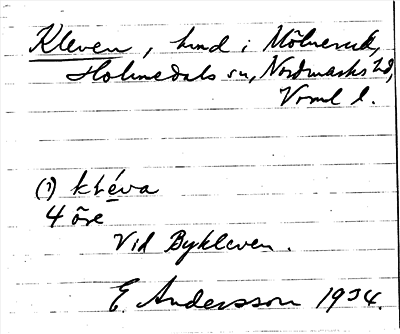 Kleven, hmd i Mölnerud,
Holmedals sn, Nordmarks hd,
Vrml l.
(1) kléva
4 öre
Vid Bykleven.
E. Andersson 1934.